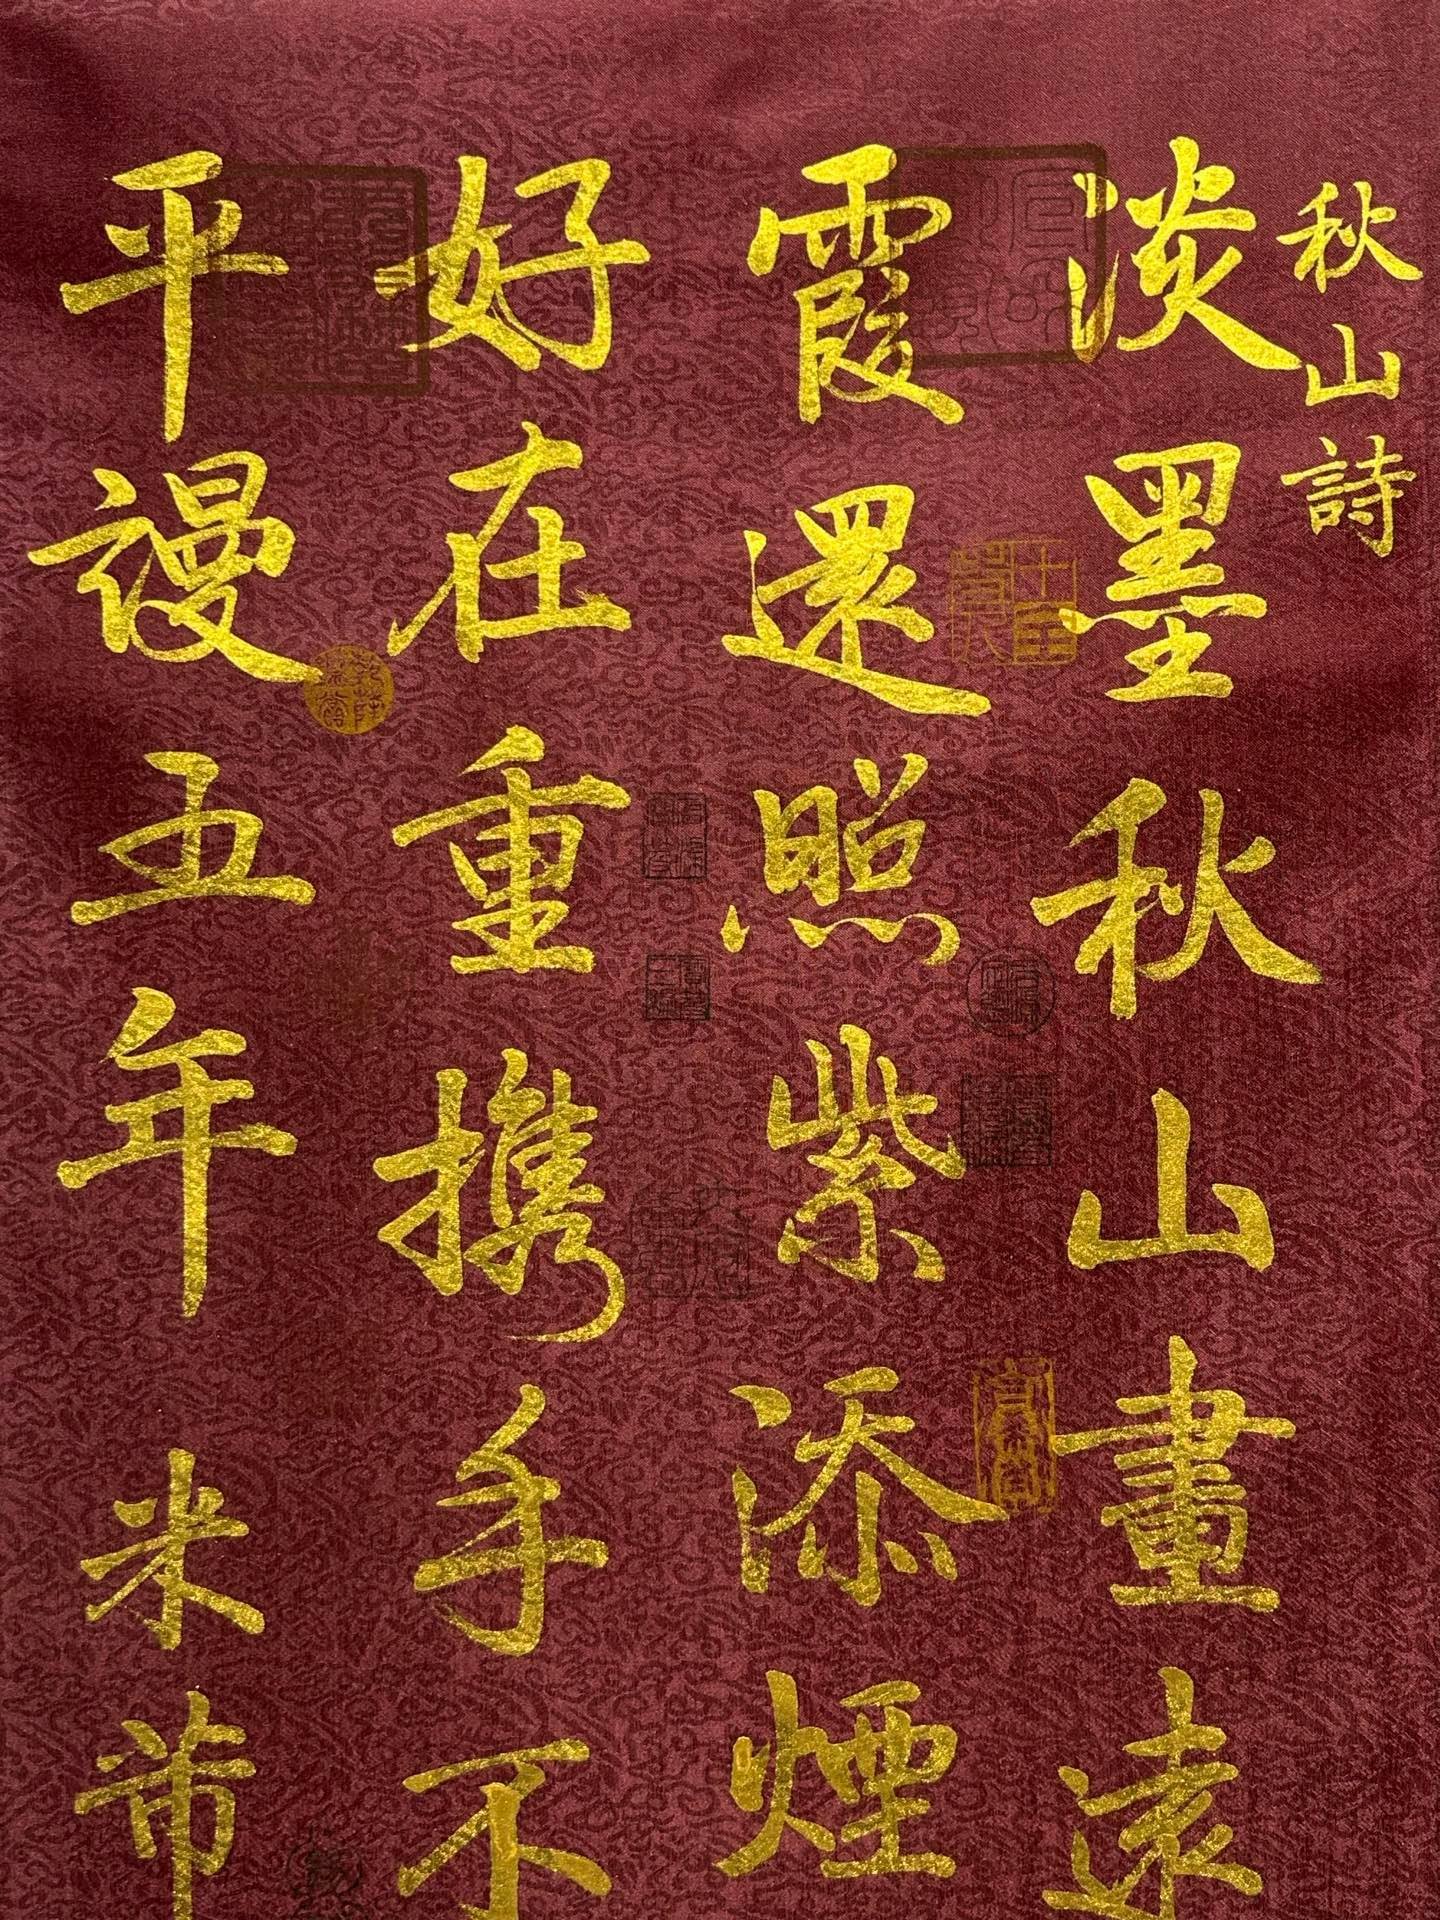 秋山詩
淡墨秋山畫遠
霞還照紫添煙
好在重攜手不
平謾五年 米芾